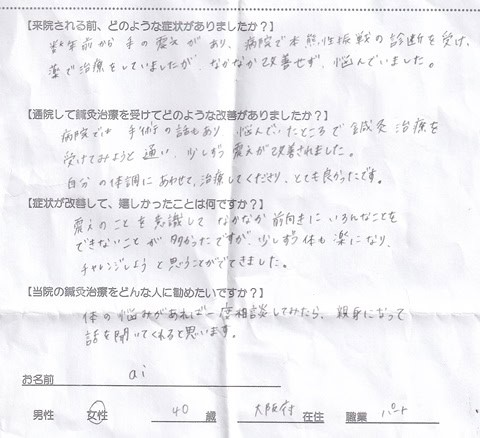 【来院される前、どのような症状がありましたか？】
数年前から手の震えがあり、病院で本態性振戦の診断を受け、
薬で治療をしていましたが、なかなか改善せず、悩んでいました。
【通院して鍼灸治療を受けてどのような改善がありましたか？】
病院でも手術の話もあり、悩んでいたところで鍼灸治療を
受けてみようと通い、少しずつ震えが改善されました。
自分の体調にあわせて、治療してくださり、とても良かったです。
【症状が改善して、嬉しかったことは何ですか？】
震えのことを意識して なかなか前向きに いろんなことを
できないことが多かったですが、少しずつ体も楽になり、
チャレンジしようと思うことができてきました。
【当院の鍼灸治療をどんな人に勧めたいですか？】
体の悩みがあれば一度相談してみたら、親身になって
話を聞いてくれると思います。
お名前 ai
男性 女性 40 歳 大阪府 在住 職業 パート